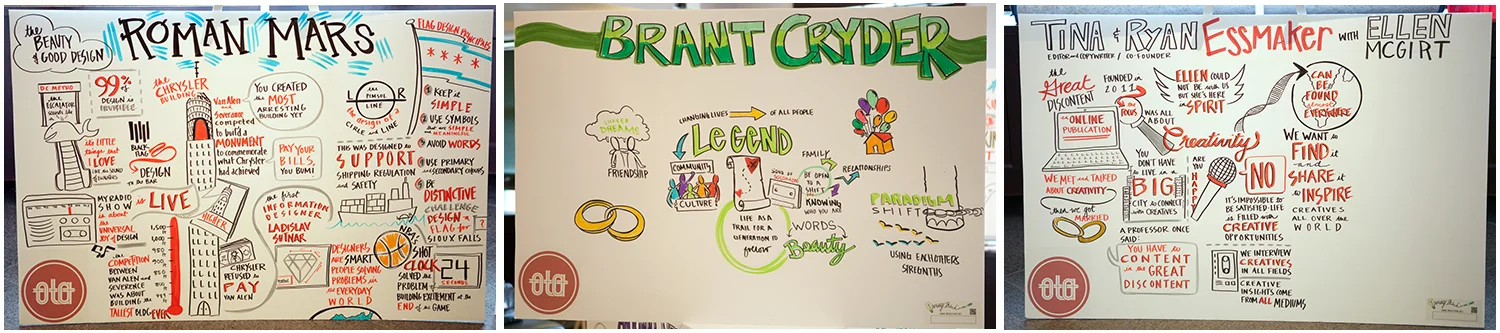 the
BEAUTY
of
GOOD DESIGN
ROMAN MARS
FLAG DESIGN PRINCIPALS
DC METRO
the
ESCALATOR
sounds like
99% of
DESIGN is
INVISIBLE
the
CHRYSLER
BUILDING
Van Alen
and
Severance
competed
to build a
MONUMENT
to commemorate
what Chrysler
had achieved
YOU CREATED
the MOST
ARRESTING
BUILDING YET
PAY YOUR
BILLS,
YOU BUM!
L R
the PIMSOL
LINE
the design of a
CIRCLE and LINE
THIS WAS DESIGNED to
SUPPORT
SHIPPING REGULATION
and SAFETY
KEEP it
SIMPLE
USE SYMBOLS
that are SIMPLE
and MEANINGFUL
AVOID WORDS
USE PRIMARY
and SECONDARY COLOURS
BE
DISTINCTIVE
CHALLENGE
DESIGN a
FLAG for
SIOUX FALLS
?
its LITTLE
things that
I LOVE
like the SOUND
of ESCALATORS
BLACK
FLAG
DESIGN
TO the BAR
MY RADIO
SHOW
is about
the
UNIVERSAL
JOY of DESIGN
is LIVE
HIGHER
the
COMPETITION
BETWEEN
VAN ALEN and
SEVERENCE
WAS ABOUT
BUILDING the
TALLEST BLDG EVER
CHRYSLER
REFUSED to
PAY
VAN ALEN
the first
INFORMATION
DESIGNER
LADISLAV
SUTNAR
DESIGNERS
are SMART
PEOPLE SOLVING
PROBLEMS in
the EVERYDAY
WORLD
NBA'S
SHOT
CLOCK
24
SECONDS
SOLVED the
PROBLEM of
BUILDING EXCITEMENT at the
END of the GAME
ota
BRANT CRYDER
SUPER
DREAMS
FRIENDSHIP
CHANGING LIVES
OF ALL PEOPLE
LEGEND
COMMUNITY
CULTURE
SONG of
SOLOMON
FAMILY
BE OPEN
TO A
SHIFT
KNOWING
WHO YOU ARE
RELATIONSHIPS
LIFE AS A
TRAIL FOR A
GENERATION TO
follow
WORDS
Beauty
PARADIGM
SHIFT
USING EACHOTHERS
STREGNTHS
ota
TINA & RYAN ESSMAKER WITH ELLEN
MCGIRT
EDITOR and COPYWRITER / CO-FOUNDER
the
Great
DISCONTENT
FOUNDED in
2011
the
FOCUS
WAS ALL
ABOUT
Creativity
ELLEN COULD
NOT BE with US
but SHE'S HERE
in SPIRIT
CAN
BE
FOUND
almost
EVERYWHERE
an ONLINE
PUBLICATION
WE MET and TALKED
ABOUT CREATIVITY
then we got
MARRIED
YOU DON'T
HAVE
to LIVE in a
BIG
CITY to CONNECT
with CREATIVES
ARE
YOU
HAPPY
?
NO
IT'S IMPOSSIBLE to
BE SATISFIED - LIFE
is FILLED with
CREATIVE
OPPORTUNITIES
WE WANT to
FIND it
and
SHARE it
to INSPIRE
CREATIVES
ALL OVER the
WORLD
A PROFESSOR ONCE
SAID:
YOU HAVE to
CONTENT
in the GREAT
DISCONTENT
WE INTERVIEW
CREATIVES
IN ALL FIELDS
CREATIVE
INSIGHTS COME
FROM ALL MEDIUMS
ota